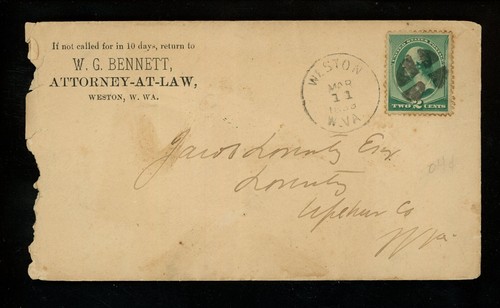 If not called for in 10 days, return to
W. G. BENNETT,
ATTORNEY-AT-LAW,
WESTON, W. VA.
WESTON
MAR
11
W.VA
TWO 2 CENTS
Jacob Lorentz Esq
Lorentz
Upshur Co
W Va